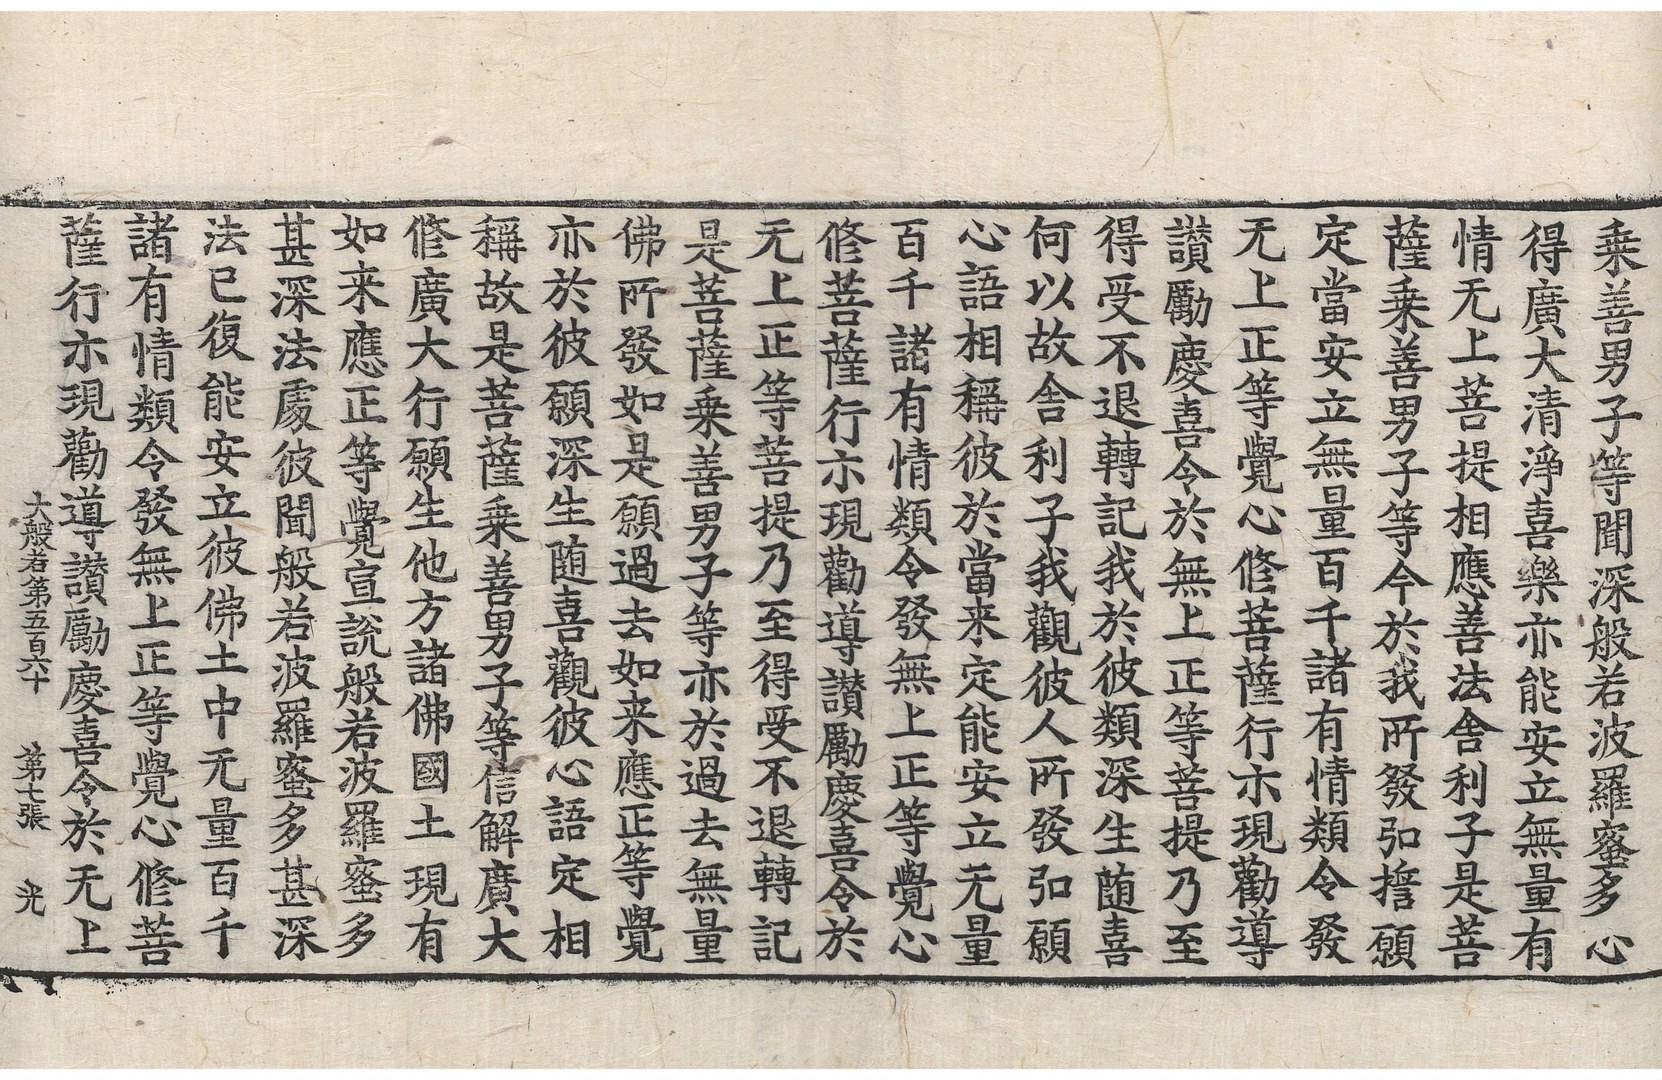 乗善男子等聞深般若波羅蜜多心
得廣大清淨喜樂亦能安立無量有
情无上菩提相應善法舍利子是菩
薩乗善男子等今於我所發弘誓願
定當安立無量百千諸有情類令發
无上正等覺心修菩薩行亦現勸導
讃勵慶喜令於無上正等菩提乃至
得受不退轉記我於彼類深生随喜
何以故舍利子我觀彼人所發弘願
心語相稱彼於當来定能安立无量
百千諸有情類令發無上正等覺心
修菩薩行亦現勸導讃勵慶喜令於
无上正等菩提乃至得受不退轉記
是菩薩乗善男子等亦於過去無量
佛所發如是願過去如来應正等覺
亦於彼願深生随喜觀彼心語定相
稱故是菩薩乗善男子等信解廣大
修廣大行願生他方諸佛國土現有
如来應正等覺宣說般若波羅蜜多
甚深法處彼聞般若波羅蜜多甚深
法已復能安立彼佛土中无量百千
諸有情類令發無上正等覺心修菩
薩行亦現勸導讃勵慶喜令於无上
大般若第五百六十 第七張 光